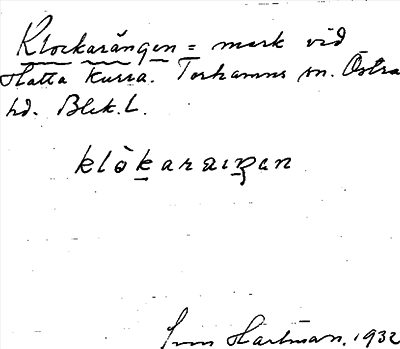 Klockarängen = mark vid
Hatta Kurra. Torhamns sn. Östra
hd. Blek. L.
klòkaraiŋan
Hartman, 1932